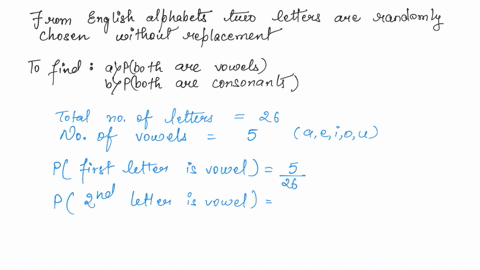 From English alphabets two letters are randomly
chosen without replacement
To find : a) P(both are vowels)
b) P(both are consonants)
Total no. of letters = 26
No. of vowels = 5 (a,e,i,o,u)
P( first letter is vowel) = 5/26
P( 2nd letter is vowel) =